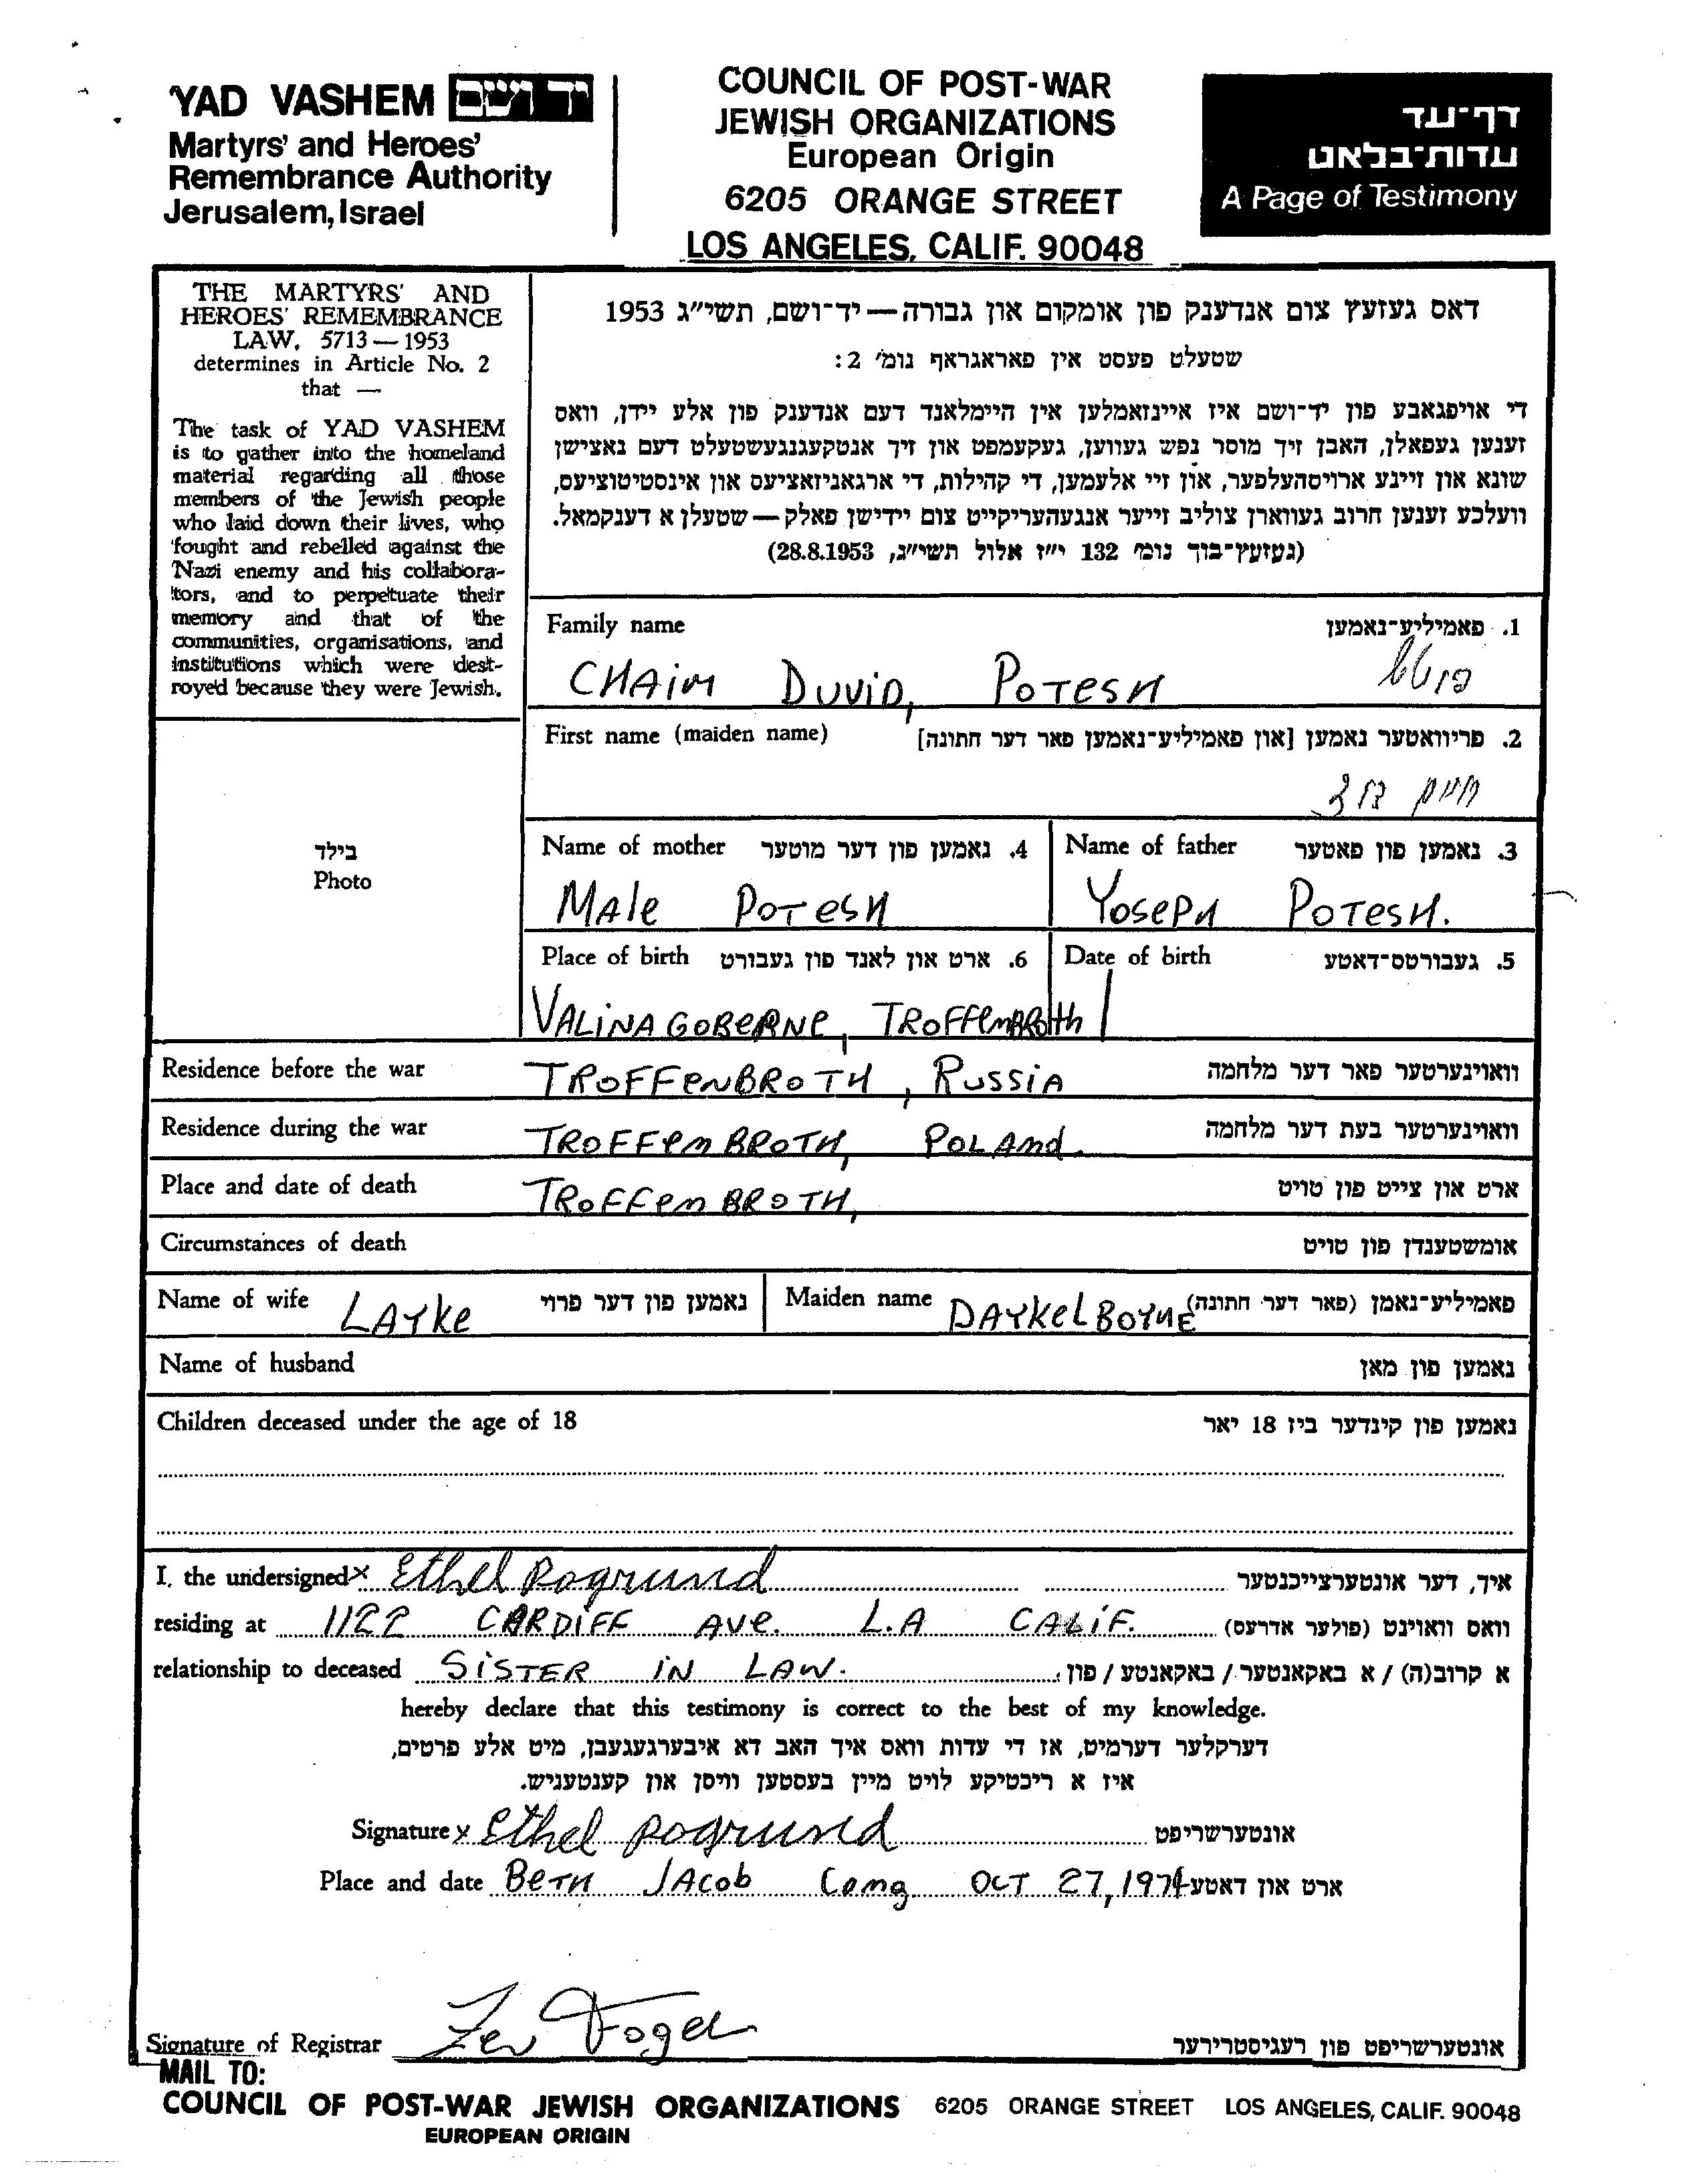 YAD VASHEM יד ושם
Martyrs' and Heroes'
Remembrance Authority
Jerusalem, Israel
COUNCIL OF POST-WAR
JEWISH ORGANIZATIONS
European Origin
6205 ORANGE STREET
LOS ANGELES, CALIF. 90048
דף-עד
עדות-בלאט
A Page of Testimony
THE MARTYRS' AND
HEROES' REMEMBRANCE
LAW, 5713—1953
determines in Article No. 2
that —
The task of YAD VASHEM
is to gather into the homeland
material regarding all those
members of the Jewish people
who laid down their lives, who
fought and rebelled against the
Nazi enemy and his collabora-
tors, and to perpetuate their
memory and that of the
communities, organisations, and
institutions which were dest-
royed because they were Jewish.
דאס געזעץ צום אנדענק פון אומקום און גבורה — יד-ושם, תשי"ג 1953
שטעלט פעסט אין פאראגראף נומ' 2:
די אויפגאבע פון יד-ושם איז איינזאמלען אין היימלאנד דעם אנדענק פון אלע יידן, וואס
זענען געפאלן, האבן זיך מוסר נפש געווען, געקעמפט און זיך אנטקעגנגעשטעלט דעם נאצישן
שונא און זיינע ארויסהעלפער, און זיי אלעמען, די קהילות, די ארגאניזאציעס און אינסטיטוציעס,
וועלכע זענען חרוב געווארן צוליב זייער אנגעהעריקייט צום יידישן פאלק — שטעלן א דענקמאל.
(געזעץ-בוך נומ' 132 י"ז אלול תשי"ג, 28.8.1953)
Family name 1. פאמיליע-נאמען
CHAIM DUVID, POTESH פוטש
First name (maiden name) 2. פריוואטער נאמען [און פאמיליע-נאמען פאר דער חתונה]
חיים דוד
בילד
Photo
Name of mother 4. נאמען פון דער מוטער Name of father 3. נאמען פון פאטער
MAle POTESH YOSEPH POTESH.
Place of birth 6. ארט און לאנד פון געבורט Date of birth 5. געבורטס-דאטע
VALINA GOBERNE, TROFFEMBROTH
Residence before the war TROFFENBROTH, RUSSIA וואוינערטער פאר דער מלחמה
Residence during the war TROFFEMBROTH, POLAND. וואוינערטער בעת דער מלחמה
Place and date of death TROFFEMBROTH, ארט און צייט פון טויט
Circumstances of death אומשטענדן פון טויט
Name of wife LAYKE נאמען פון דער פרוי Maiden name DAYKELBOYME פאמיליע-נאמן (פאר דער חתונה)
Name of husband נאמען פון מאן
Children deceased under the age of 18 נאמען פון קינדער ביז 18 יאר
I, the undersigned x Ethel Pogrund איך, דער אונטערצייכנטער
residing at 1122 CARDIFF AVE. L.A CALIF. וואס וואוינט (פולער אדרעס)
relationship to deceased SISTER IN LAW. א קרוב(ה) / א באקאנטער / באקאנטע / פון
hereby declare that this testimony is correct to the best of my knowledge.
דערקלער דערמיט, אז די עדות וואס איך האב דא איבערגעגעבן, מיט אלע פרטים,
איז א ריכטיקע לויט מיין בעסטען וויסן און קענטעניש.
Signature x Ethel pogrund אונטערשריפט
Place and date BETH JACOB Cong OCT 27, 1974 ארט און דאטע
Signature of Registrar Zev Fogel אונטערשריפט פון רעגיסטרירער
MAIL TO:
COUNCIL OF POST-WAR JEWISH ORGANIZATIONS 6205 ORANGE STREET LOS ANGELES, CALIF. 90048
EUROPEAN ORIGIN